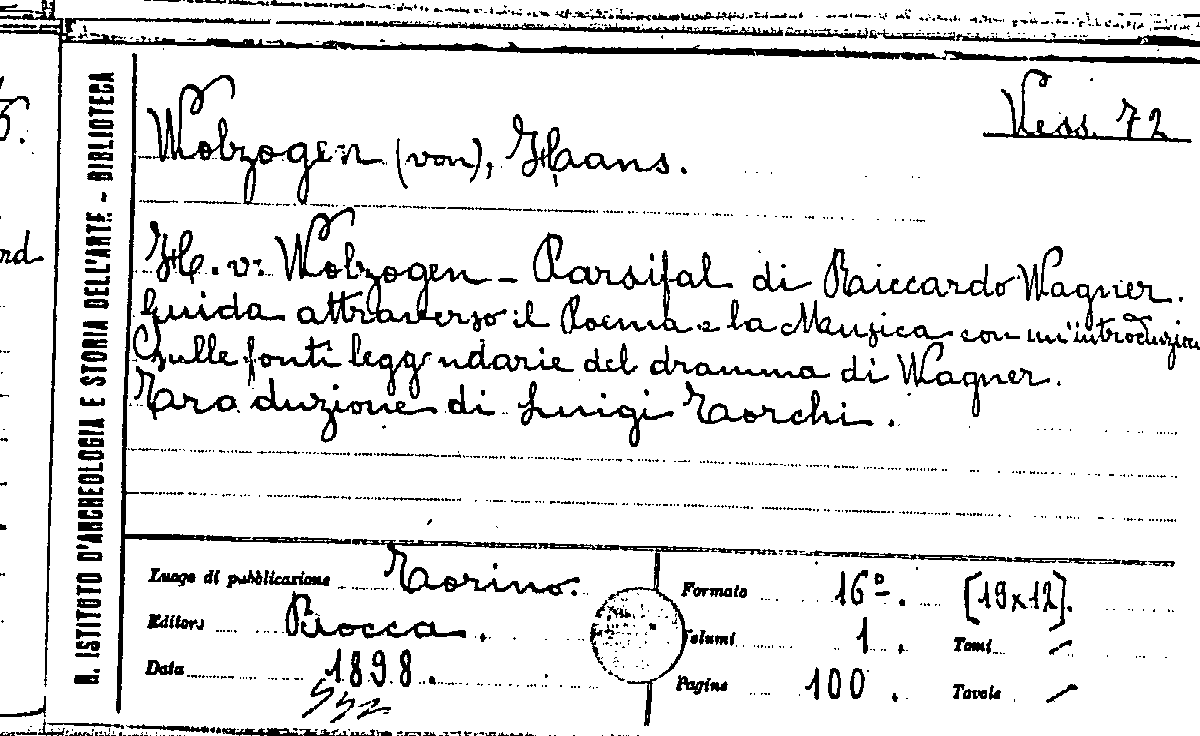 5.
rd
R. ISTITUTO D'ARCHEOLOGIA E STORIA DELL'ARTE - BIBLIOTECA
Vess. 72
Wolzogen (von), Haans.
H. v. Wolzogen - Parsifal di Riccardo Wagner.
Guida attraverso il Poema e la Musica con un'introduzione
Sulle fonti leggendarie del dramma di Wagner.
Traduzione di Luigi Torchi.
Luogo di pubblicazione Torino.
Editore Bocca.
Data 1898.
552
Formato 16º. [19x12].
Volumi 1. Tomi /
Pagine 100. Tavole /